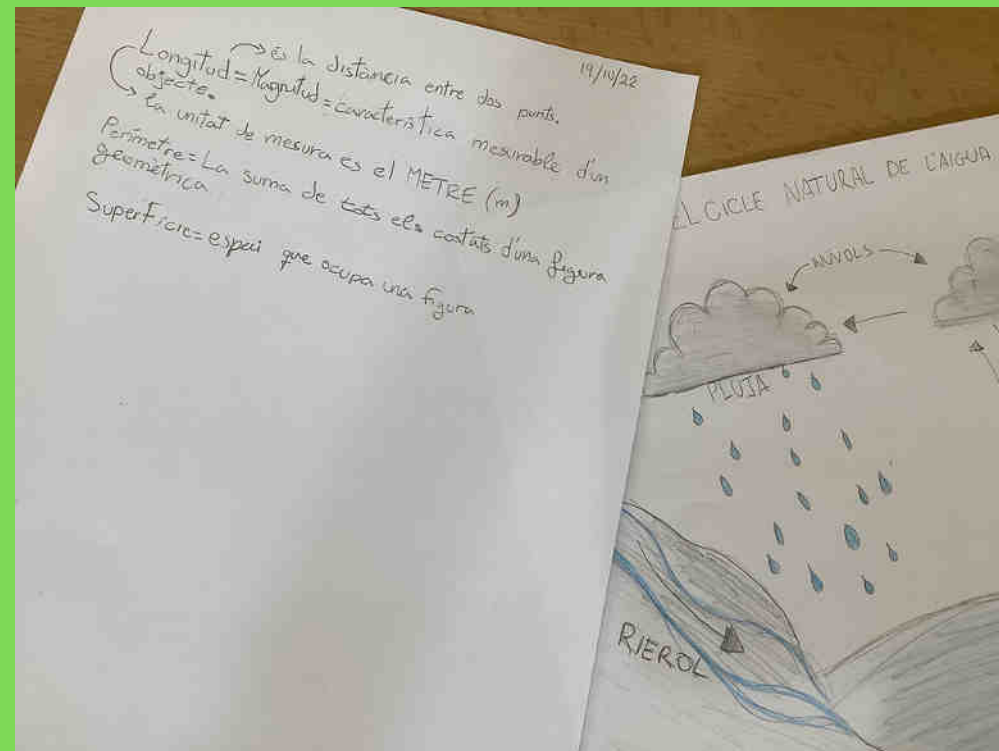 19/10/22
→ és la distància entre dos punts.
Longitud = Magnitud = característica mesurable d'un
objecte.
→ La unitat de mesura és el METRE (m)
Perímetre = La suma de tots els costats d'una figura
geomètrica
Superfície = espai que ocupa una figura
EL CICLE NATURAL DE L'AIGUA
NÚVOLS
PLUJA
RIEROL